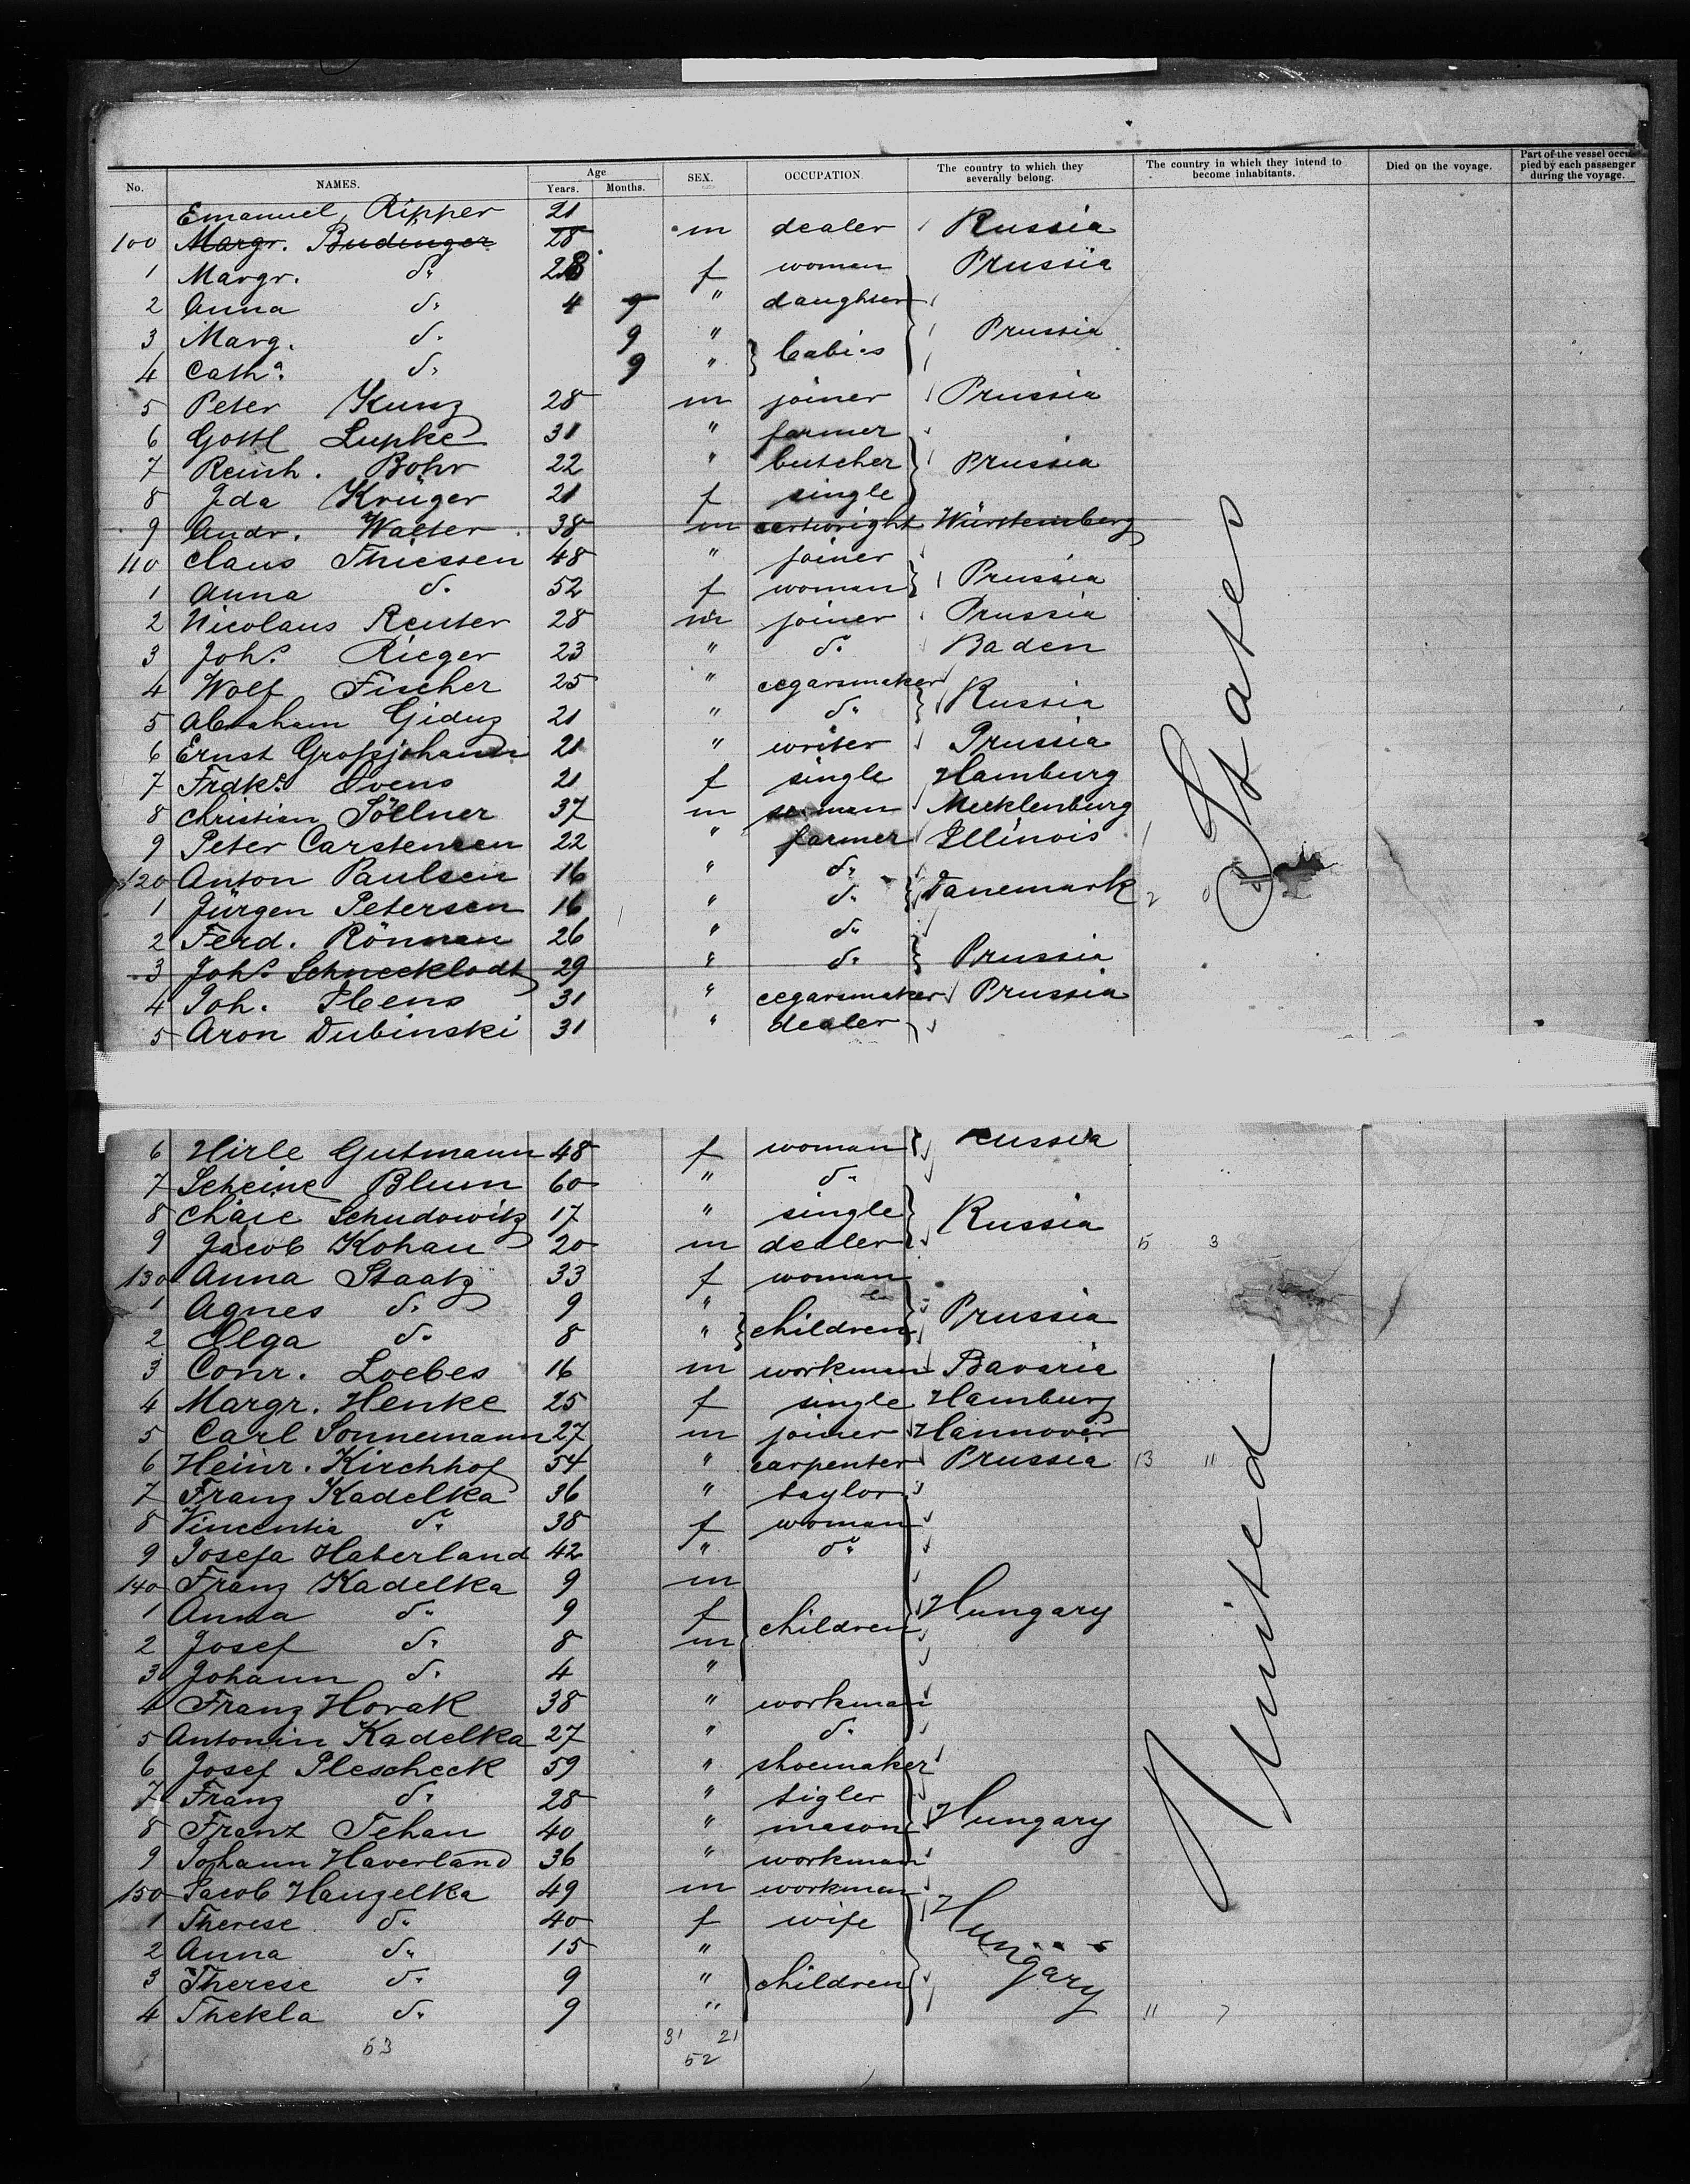 No. NAMES. Age Years. Months. SEX. OCCUPATION. The country to which they severally belong. The country in which they intend to become inhabitants. Died on the voyage. Part of the vessel occupied by each passenger during the voyage.
Emanuel Ripper 21
100 Margr. Budinger 28 m dealer Russia
1 Margr. do 28 f woman Prussia
2 Anna do 4 9 " daughter
3 Marg. do 9 " babies Prussia
4 Catha. do 9 "
5 Peter Kunz 28 m joiner Prussia
6 Gottl Lupke 31 " farmer
7 Reinh. Bohr 22 " butcher Prussia
8 Ida Krüger 21 f single
9 Andr. Walter 38 m cartwright Württemberg
110 Claus Thiessen 48 " joiner
1 Anna do 52 f woman Prussia
2 Nicolaus Reuter 28 m joiner Prussia
3 Johs. Rieger 23 " do Baden
4 Wolf Fischer 25 " cegarsmaker Russia
5 Abraham Giduz 21 " do
6 Ernst Großjohann 21 " writer Prussia
7 Frdke. Ovens 21 f single Hamburg
8 Christian Söllner 37 m seaman Mecklenburg
9 Peter Carstensen 22 " farmer Illinois 1
120 Anton Paulsen 16 " do
1 Jürgen Petersen 16 " do Danemark 2 0
2 Ferd. Rönnau 26 " do
3 Johs. Schnecklodt 29 " do Prussia
4 Joh. Ibens 31 " cegarsmaker Prussia
5 Aron Dubinski 31 " dealer
6 Hirle Gutmann 48 f woman Russia
7 Scheine Blum 60 " do
8 Chaie Schudowitz 17 " single Russia
9 Jacob Kohan 20 m dealer 15 3
130 Anna Staatz 33 f woman
1 Agnes do 9 " children Prussia
2 Elga do 8 "
3 Conr. Loebes 16 m workman Bavaria
4 Margr. Henke 25 f single Hamburg
5 Carl Sonnemann 27 m joiner Hannover
6 Heinr. Kirchhof 54 " carpenter Prussia 13 11
7 Franz Kadelka 36 " taylor
8 Vincentia do 38 f woman
9 Josefa Haberland 42 " do
140 Franz Kadelka 9 m
1 Anna do 9 f children Hungary
2 Josef do 8 m
3 Johann do 4 "
4 Franz Horak 38 " workman
5 Antonin Kadelka 27 " do
6 Josef Plescheck 59 " shoemaker
7 Franz do 28 " tigler
8 Franz Tehan 40 " mason Hungary
9 Johann Haverland 36 " workman
150 Jacob Hanzelka 49 m workman
1 Therese do 40 f wife Hungary
2 Anna do 15 "
3 Therese do 9 " children
4 Thekla do 9 " 11 7
53 31 21
52
United States